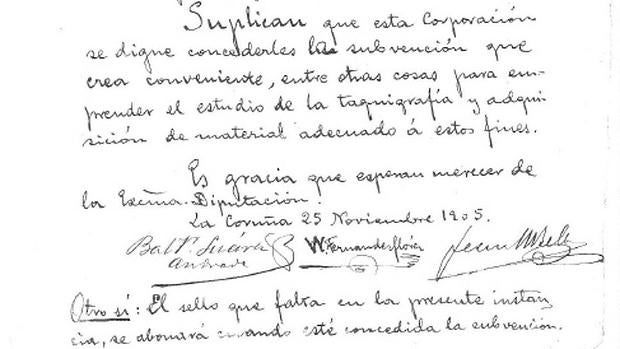 Suplican que esta Corporación
se digne concederles la subvención que
crea conveniente, entre otras cosas para em-
prender el estudio de la taquigrafía y adqui
sición de material adecuado á estos fines.
Es gracia que esperan merecer de
la Excma. Diputación.
La Coruña 25 Noviembre 1905.
Balt.r Suárez W. Fernandez Flórez
Andrade
Otro sí: El sello que falta en la presente instan
cia, se abonará cuando esté concedida la subvención.